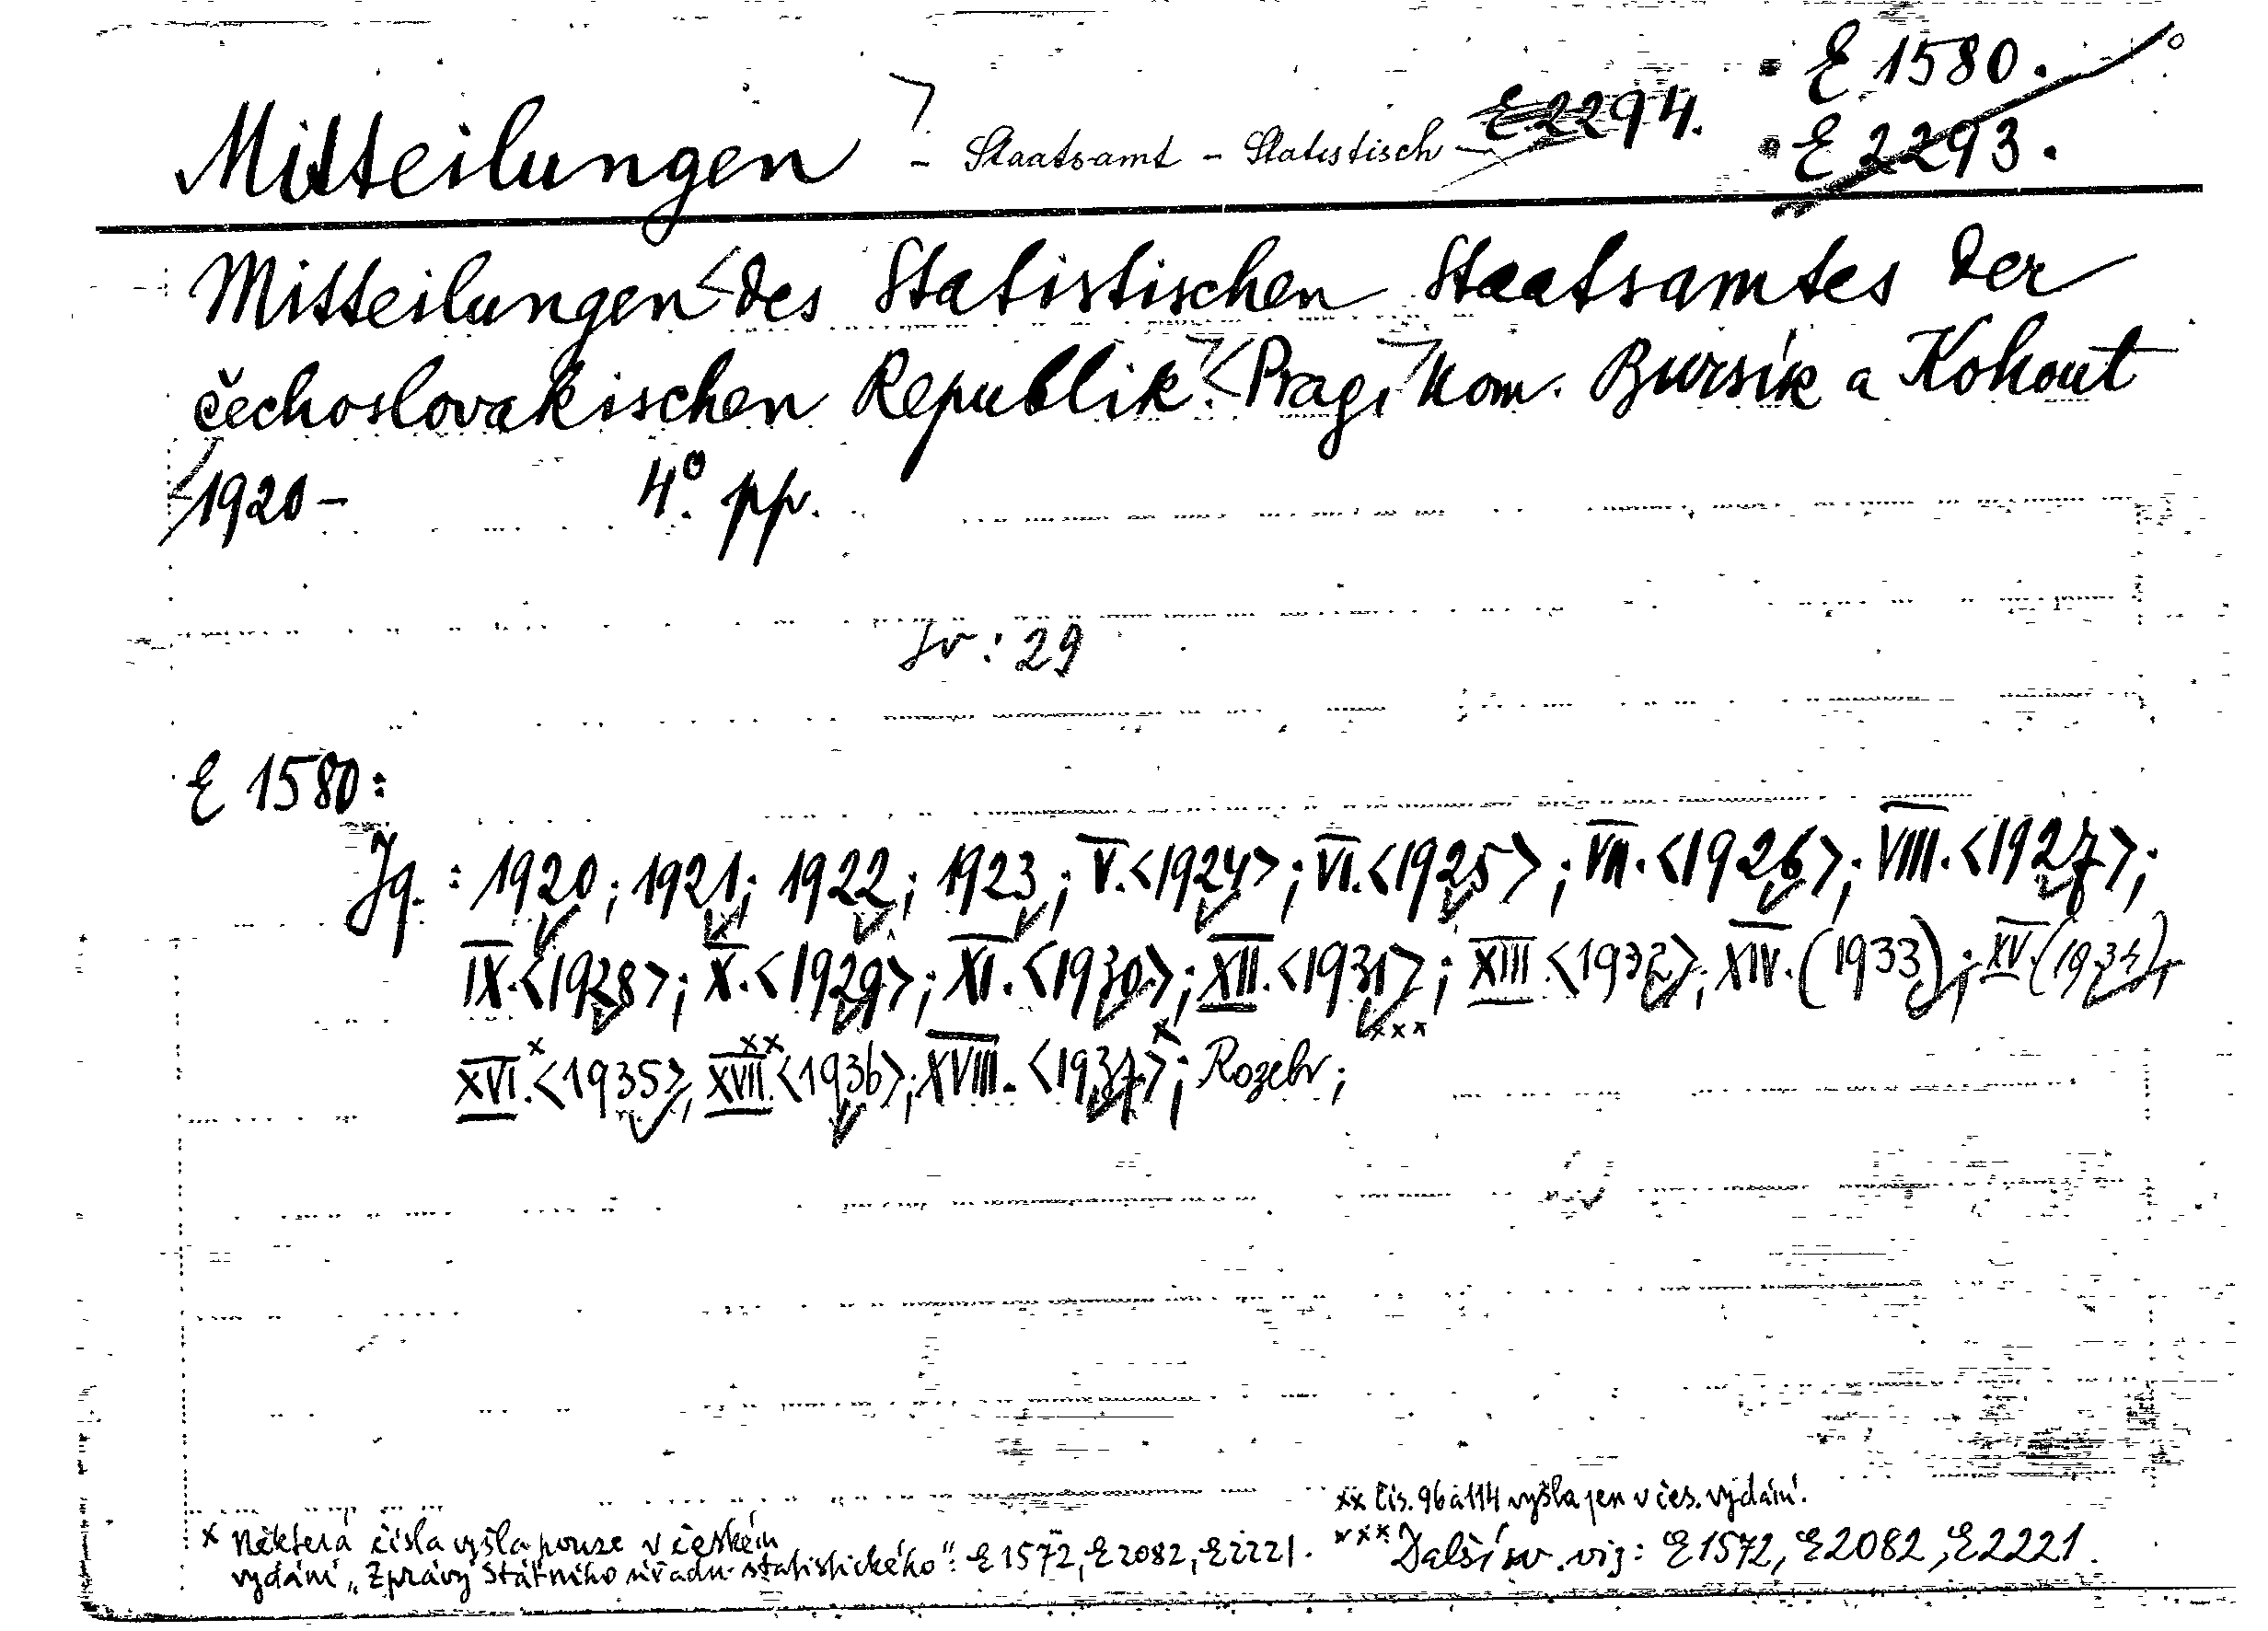 E 1580.
Mitteilungen - Staatsamt - Statistisch E 2294. E 2293.
Mitteilungen des Statistischen Staatsamtes der
čechoslovakischen Republik. Prag, Kom. Bursík a Kohout
1920 - 4° pp.
Sv: 29
E 1580:
Jg. : 1920; 1921; 1922; 1923; V.<1924>; VI.<1925>; VII.<1926>; VIII.<1927>;
IX.<1928>; X.<1929>; XI.<1930>; XII.<1931>; XIII.<1932>; XIV.(1933); XV.(1934);
XVI.x<1935>, XVII.xx<1936>; XVIII.<1937>x; Rozebr; xxx
xx Čís. 96 a 114 vyšla jen v čes. vydání.
x Některá čísla vyšla pouze v českém
vydání „Zprávy Státního úřadu statistického": E 1572, E 2082, E 2221.
xxx Další sv. viz: E 1572, E 2082, E 2221.